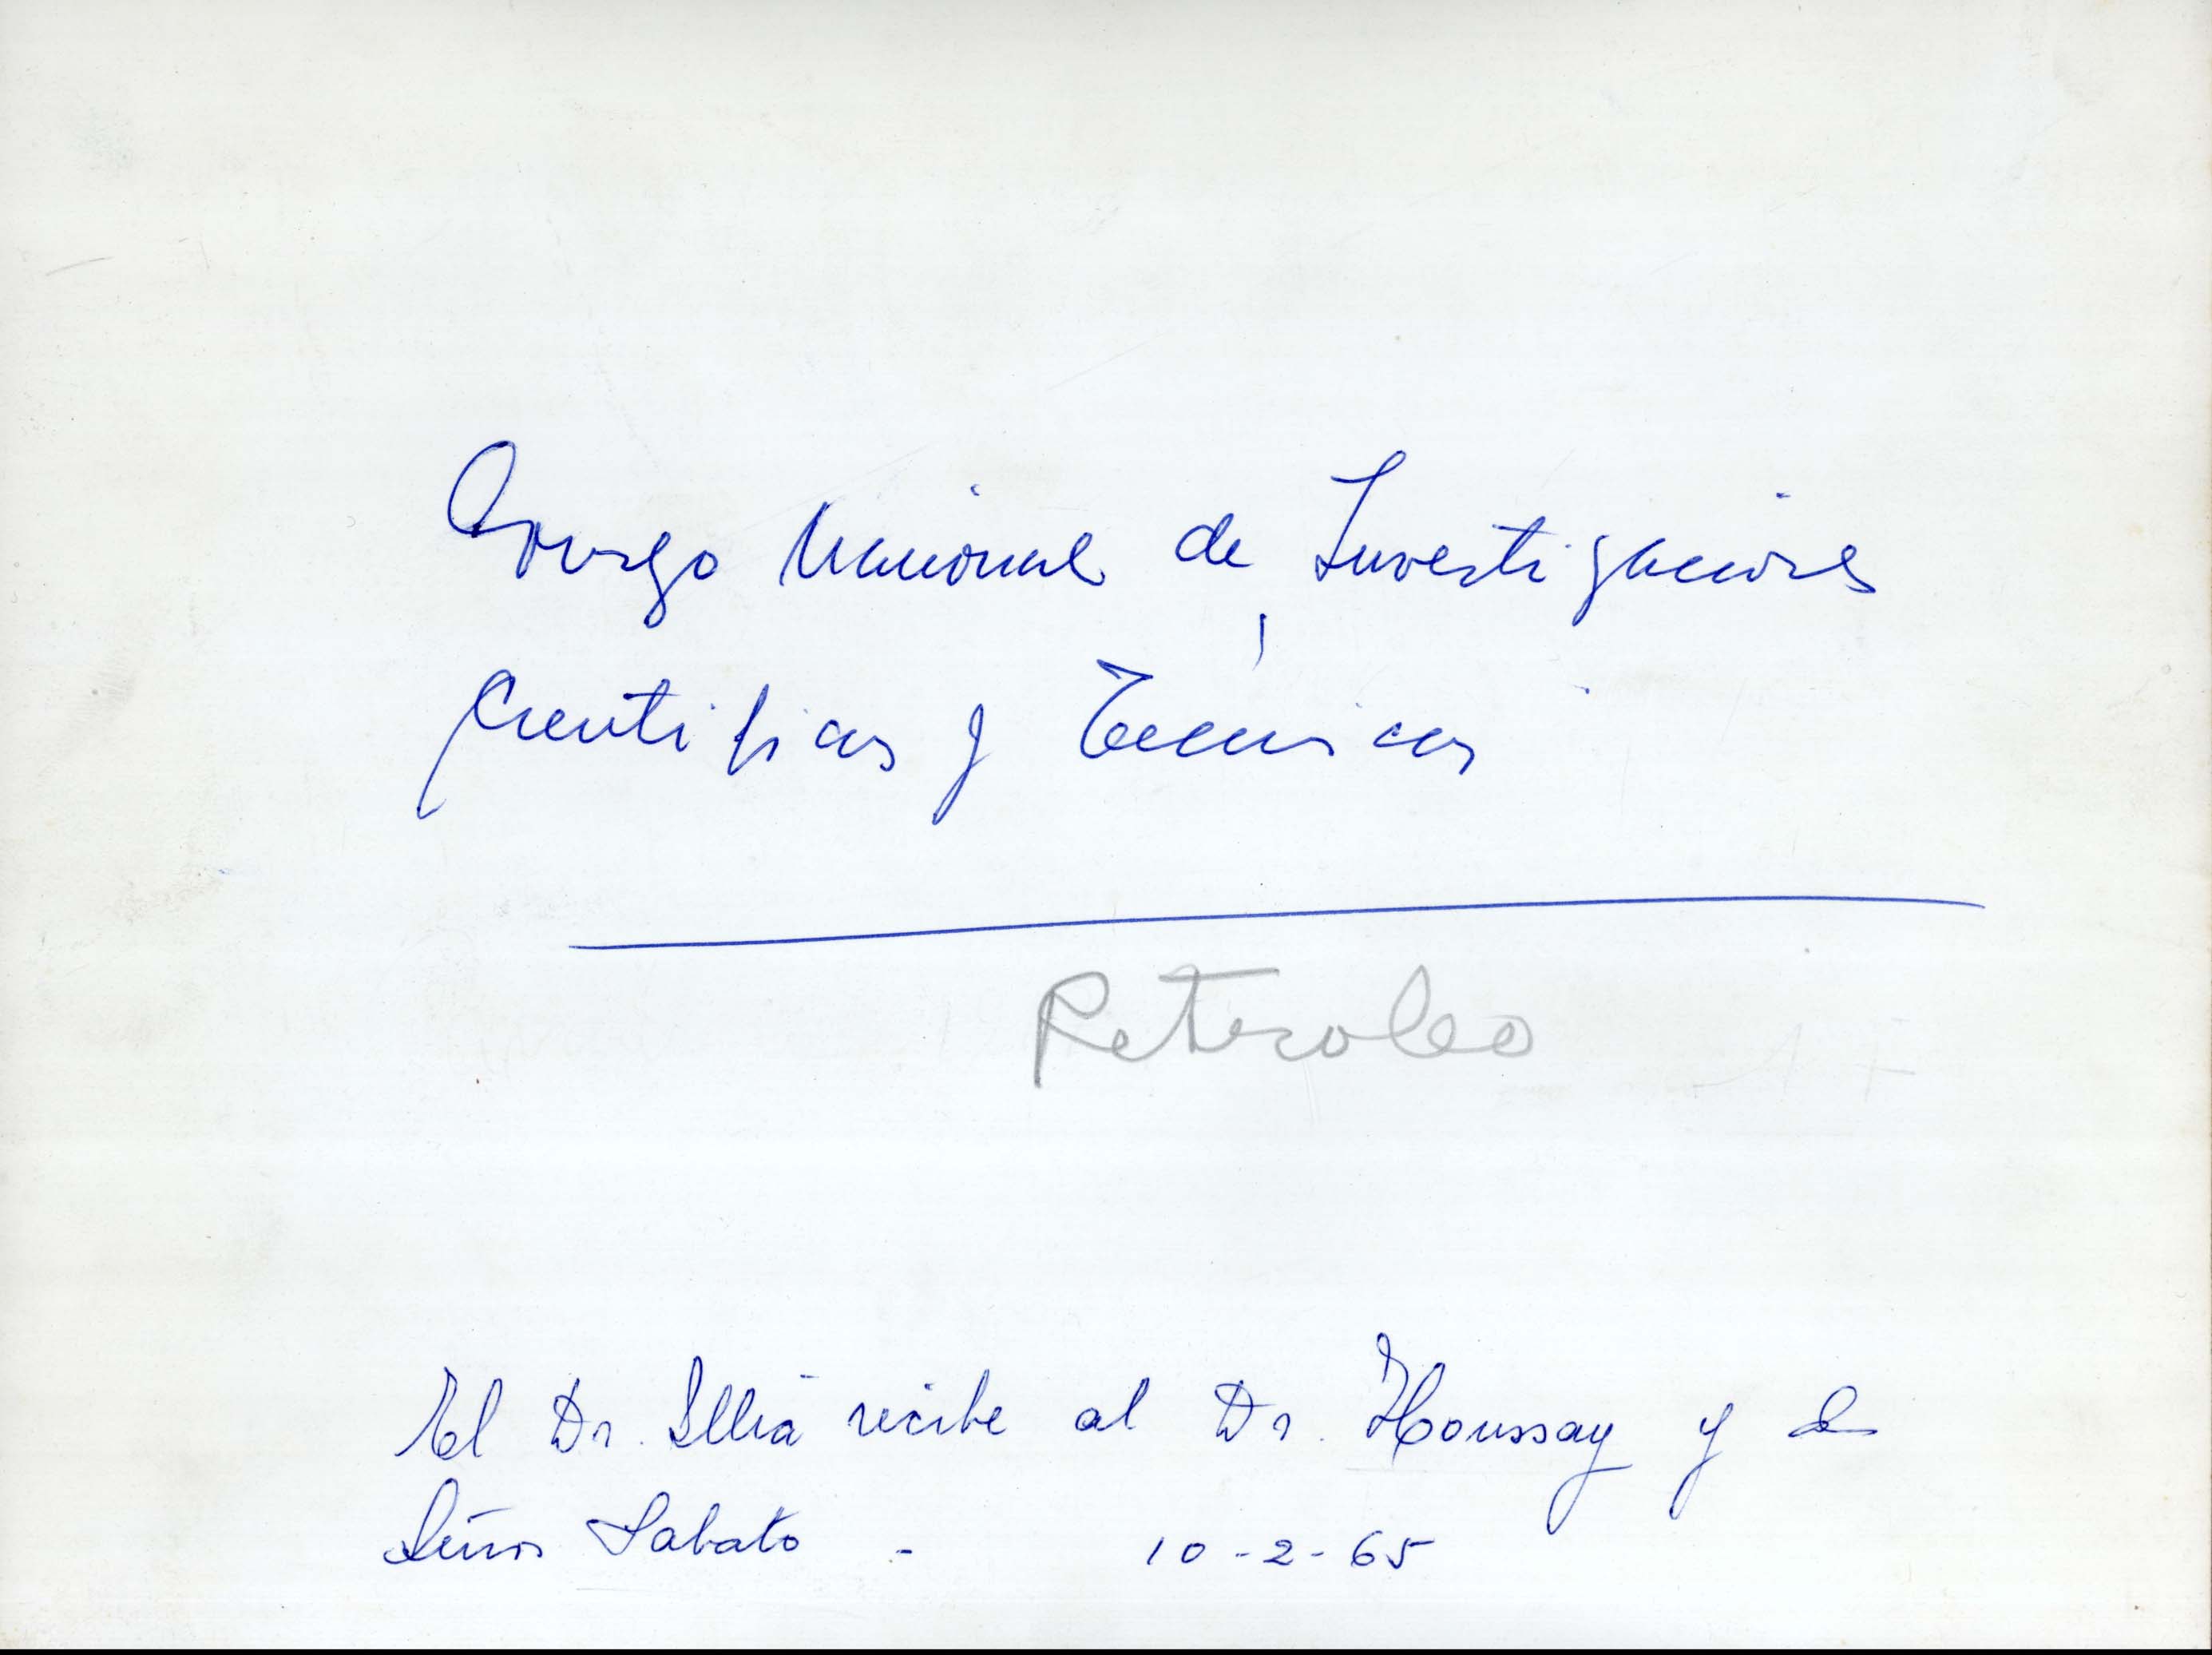 Consejo Nacional de Investigaciones
Cientificas y Técnicas
Petroleo
El Dr. Illia recibe al Dr. Houssay y al
Señor Sabato - 10-2-65